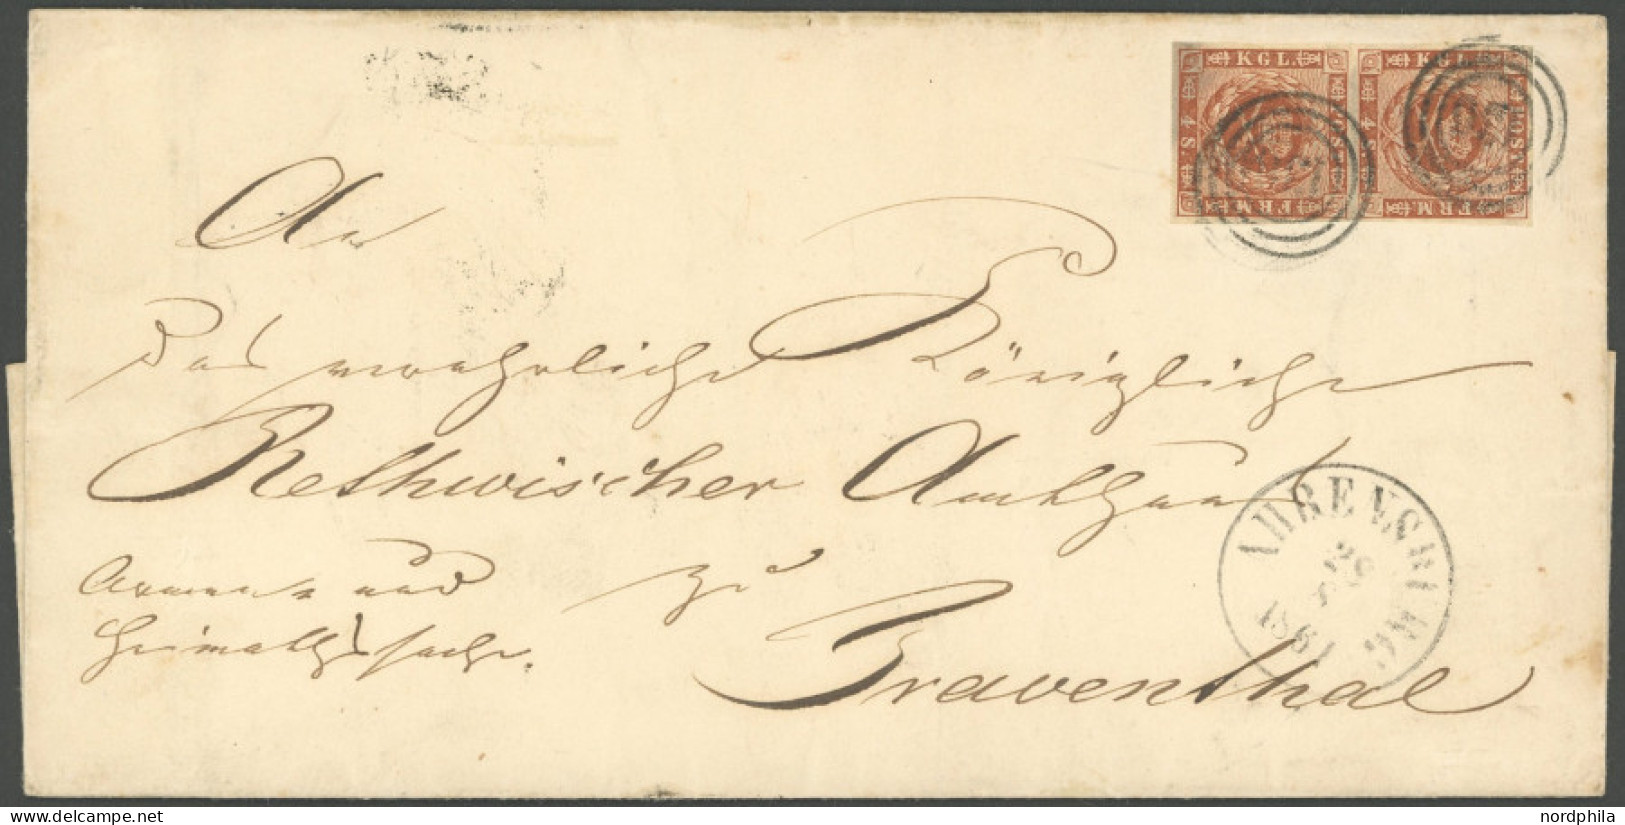 KGL. KGL.
4 S POST 4 S POST
FRM FRM
An
Das wohlliche Königliche
Rethwischer Amthaus
zu
Armen und
Heimathssache.
Traventhal
AHRENSBURG
1861
www.delcampe.net
nordphila